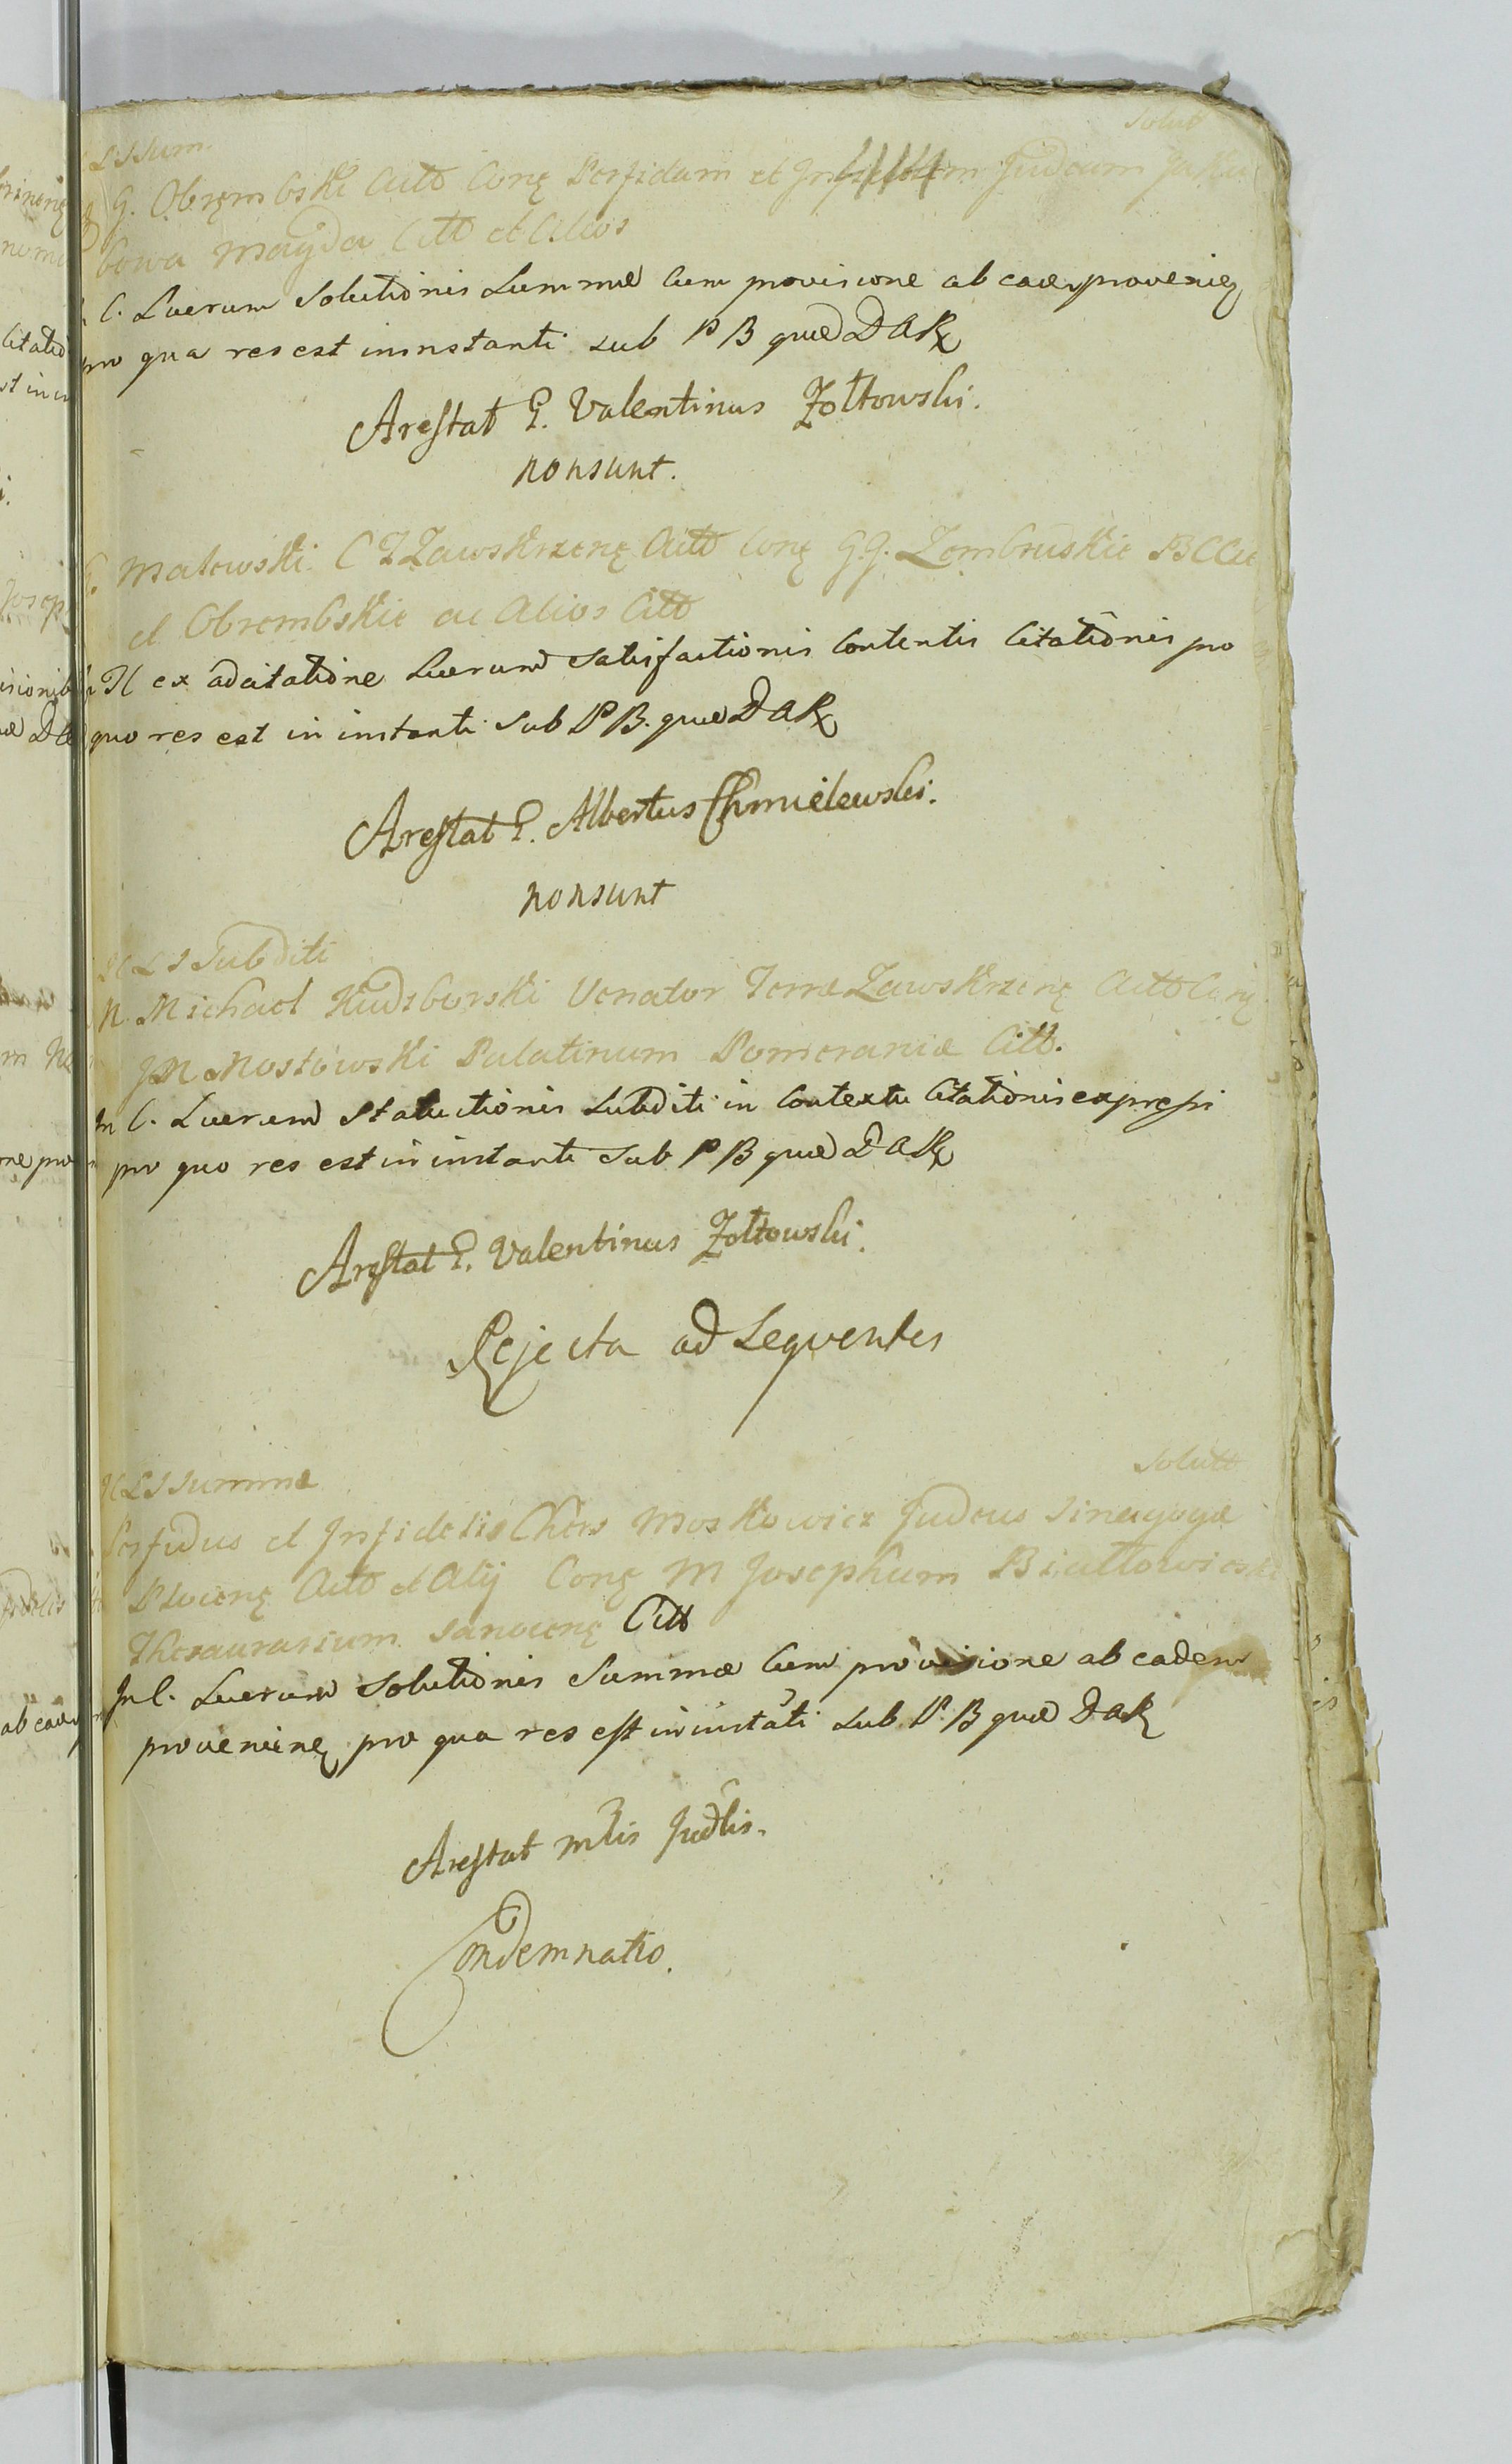 Solut
LS Sum.
G. Obrembski Citto Conę Perfidam et Judeam Jaku
bowa Mayda Citto et Alios
C. Lucrum Solutionis Summæ Cum provisione ab eadem provenię
pro qua res est in instanti sub P B quæ D a R
Arestat G. Valentinus Żołtowski.
non sunt.
Malowski C T Zawskrzenę Actto Conę G.G. Zembruskie
et Obrembskie ac Alios Citto
Il ex adcitatione Lucrum Satisfactionis Contentis Citationis pro
quo res est in instanti Sub P B. quæ D a R
Arestat G. Albertus Chmielewski.
non sunt
LS Subditi
M. Michael Kudzborski Venator Terræ Zawskrzenę Actto Conę
JM Mostowski Palatinum Pomeraniæ Citto.
In C. Lucrum Statuitionis Subditi in Contextu Citationis expressi
pro quo res est in instanti Sub P B quæ D a R
Arestat G. Valentinus Żołtowski.
Rejecta ad Seqventes
Solutt
LS Summæ
Perfidus et Infidelis Moskowicz Judeus Sinagogæ
Plocenę Actto et Alij Conę M Josephum
Thesaurarium Sanocenę Citt
In C. Lucrum Solutionis Summæ Cum provisione ab eadem
provenienę pro qua res est in instāti Sub P. B quæ D a R
Arestat mlis Judlis.
Condemnatio.